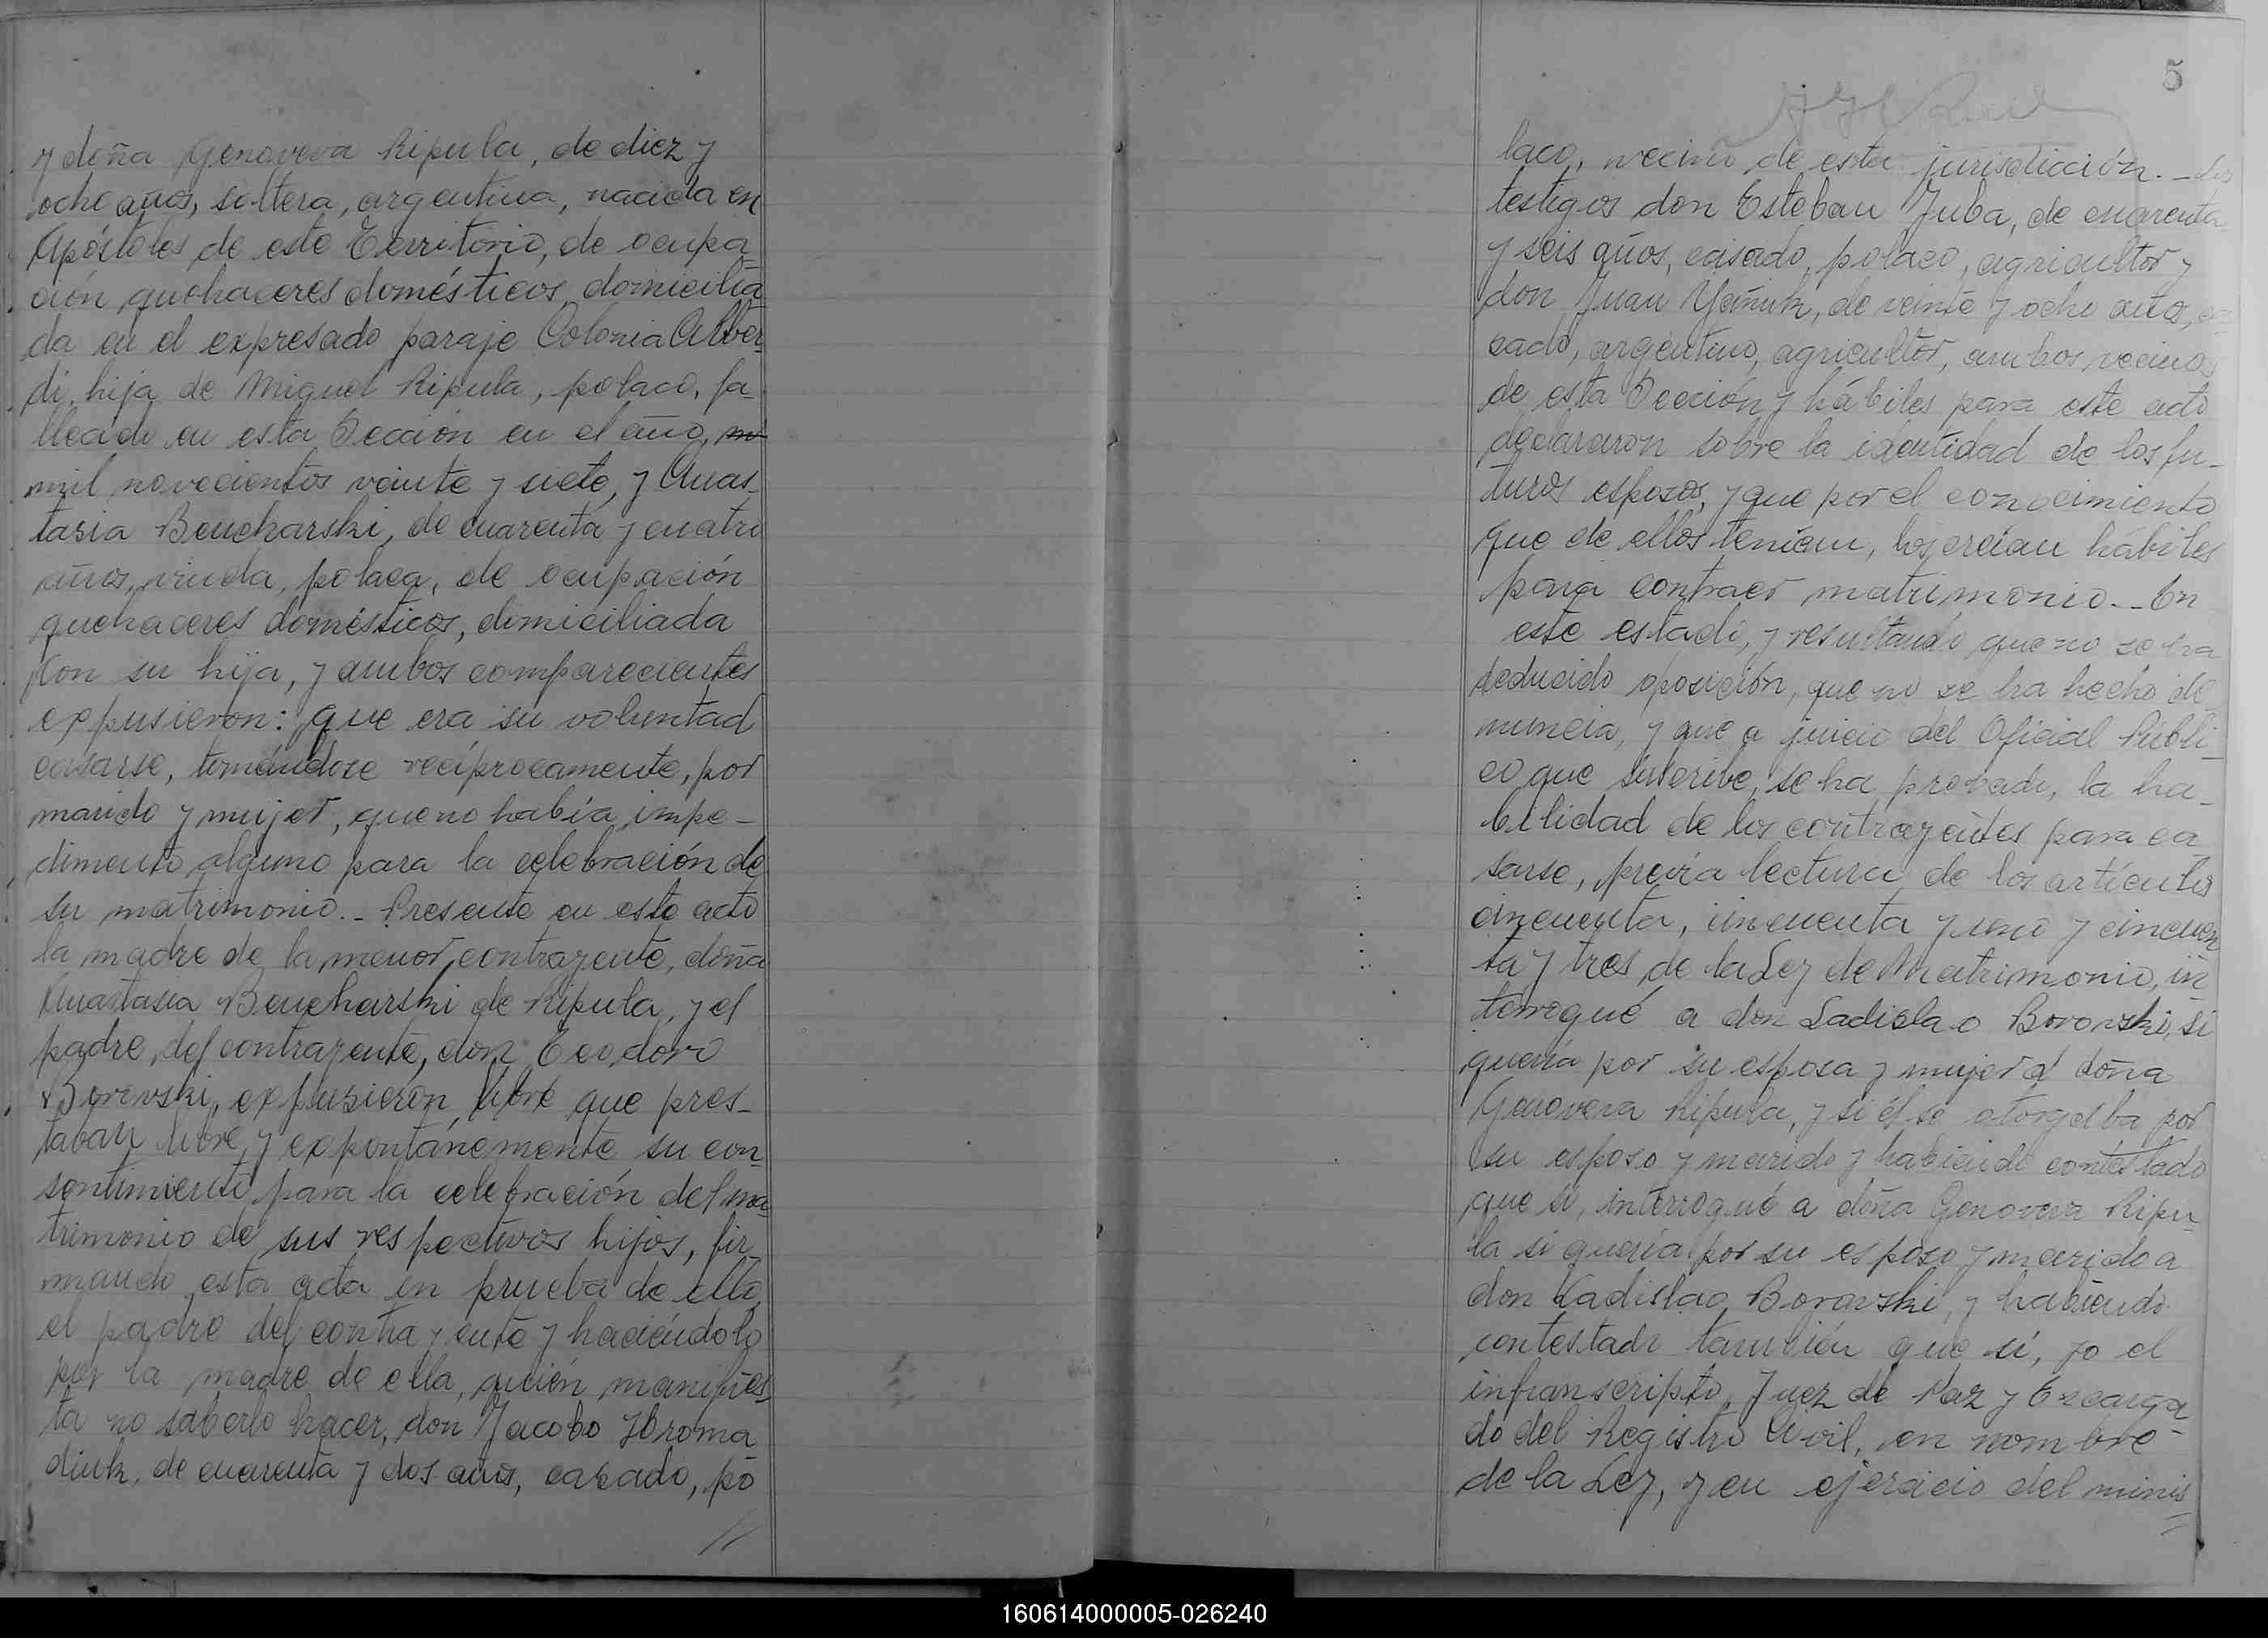 y doña Genoveva Ripula, de diez y
ocho años, soltera, argentina, nacida en
Apóstoles de este Territorio, de ocupa-
ción quehaceres domésticos, domicilia-
da en el expresado paraje Colonia Alber-
di, hija de Miguel Ripula, polaco, fa-
llecido en esta Sección en el año,
mil novecientos veinte y siete, y Anas-
tasia Beucharski, de cuarenta y cuatro
años, viuda, polaca, de ocupación
quehaceres domésticos, domiciliada
con su hija, y ambos comparecientes
expusieron: que era su voluntad
casarse, tomándose recíprocamente, por
marido y mujer, que no había impe-
dimento alguno para la celebración de
su matrimonio.- Presente en este acto
la madre de la menor contrayente, doña
Anastasia Beucharski de Ripula, y el
padre del contrayente, don Teodoro
Borovski, expusieron libre que pres-
taban libre y expontánemente su con-
sentimiento para la celebración del ma-
trimonio de sus respectivos hijos, fir-
mando esta acta en prueba de ello
el padre del contrayente y haciéndolo
por la madre de ella, quién manifies-
ta no saberlo hacer, don Jacobo Hroma
diuk, de cuarenta y dos años, casado, po
5
laco, vecino de esta jurisdicción.- Los
testigos don Esteban Juba, de cuarenta
y seis años, casado, polaco, agricultor y
don Juan Yañuk, de veinte y ocho años, ca-
sado, argentino, agricultor, ambos vecinos
de esta Sección y hábiles para este acto
declararon sobre la identidad de los fu-
turos esposos, y que por el conocimiento
que de ellos tenían, los creían hábiles
para contraer matrimonio.- En
este estado, y resultando que no se ha
deducido oposición, que no se ha hecho de-
nuncia, y que a juicio del Oficial Públi-
co que suscribe, se ha probado, la ha-
bilidad de los contrayentes para ca-
sarse, previa lectura de los artículos
cincuenta, cincuenta y uno y cincuen
ta y tres de la Ley de Matrimonio, in
terrogué a don Ladislao Borovski, si
quería por su esposa y mujer a doña
Genoveva Ripula, y si él se otorgaba por
su esposo y marido y habiendo contestado
que sí, interrogué a doña Genoveva Ripu-
la si quería por su esposo y marido a
don Ladislao Borovski, y habiendo
contestado también que sí, yo el
infranscripto, Juez de Paz y Encarga-
do del Registro Civil, en nombre
de la Ley, y en ejercicio del minis
160614000005-026240